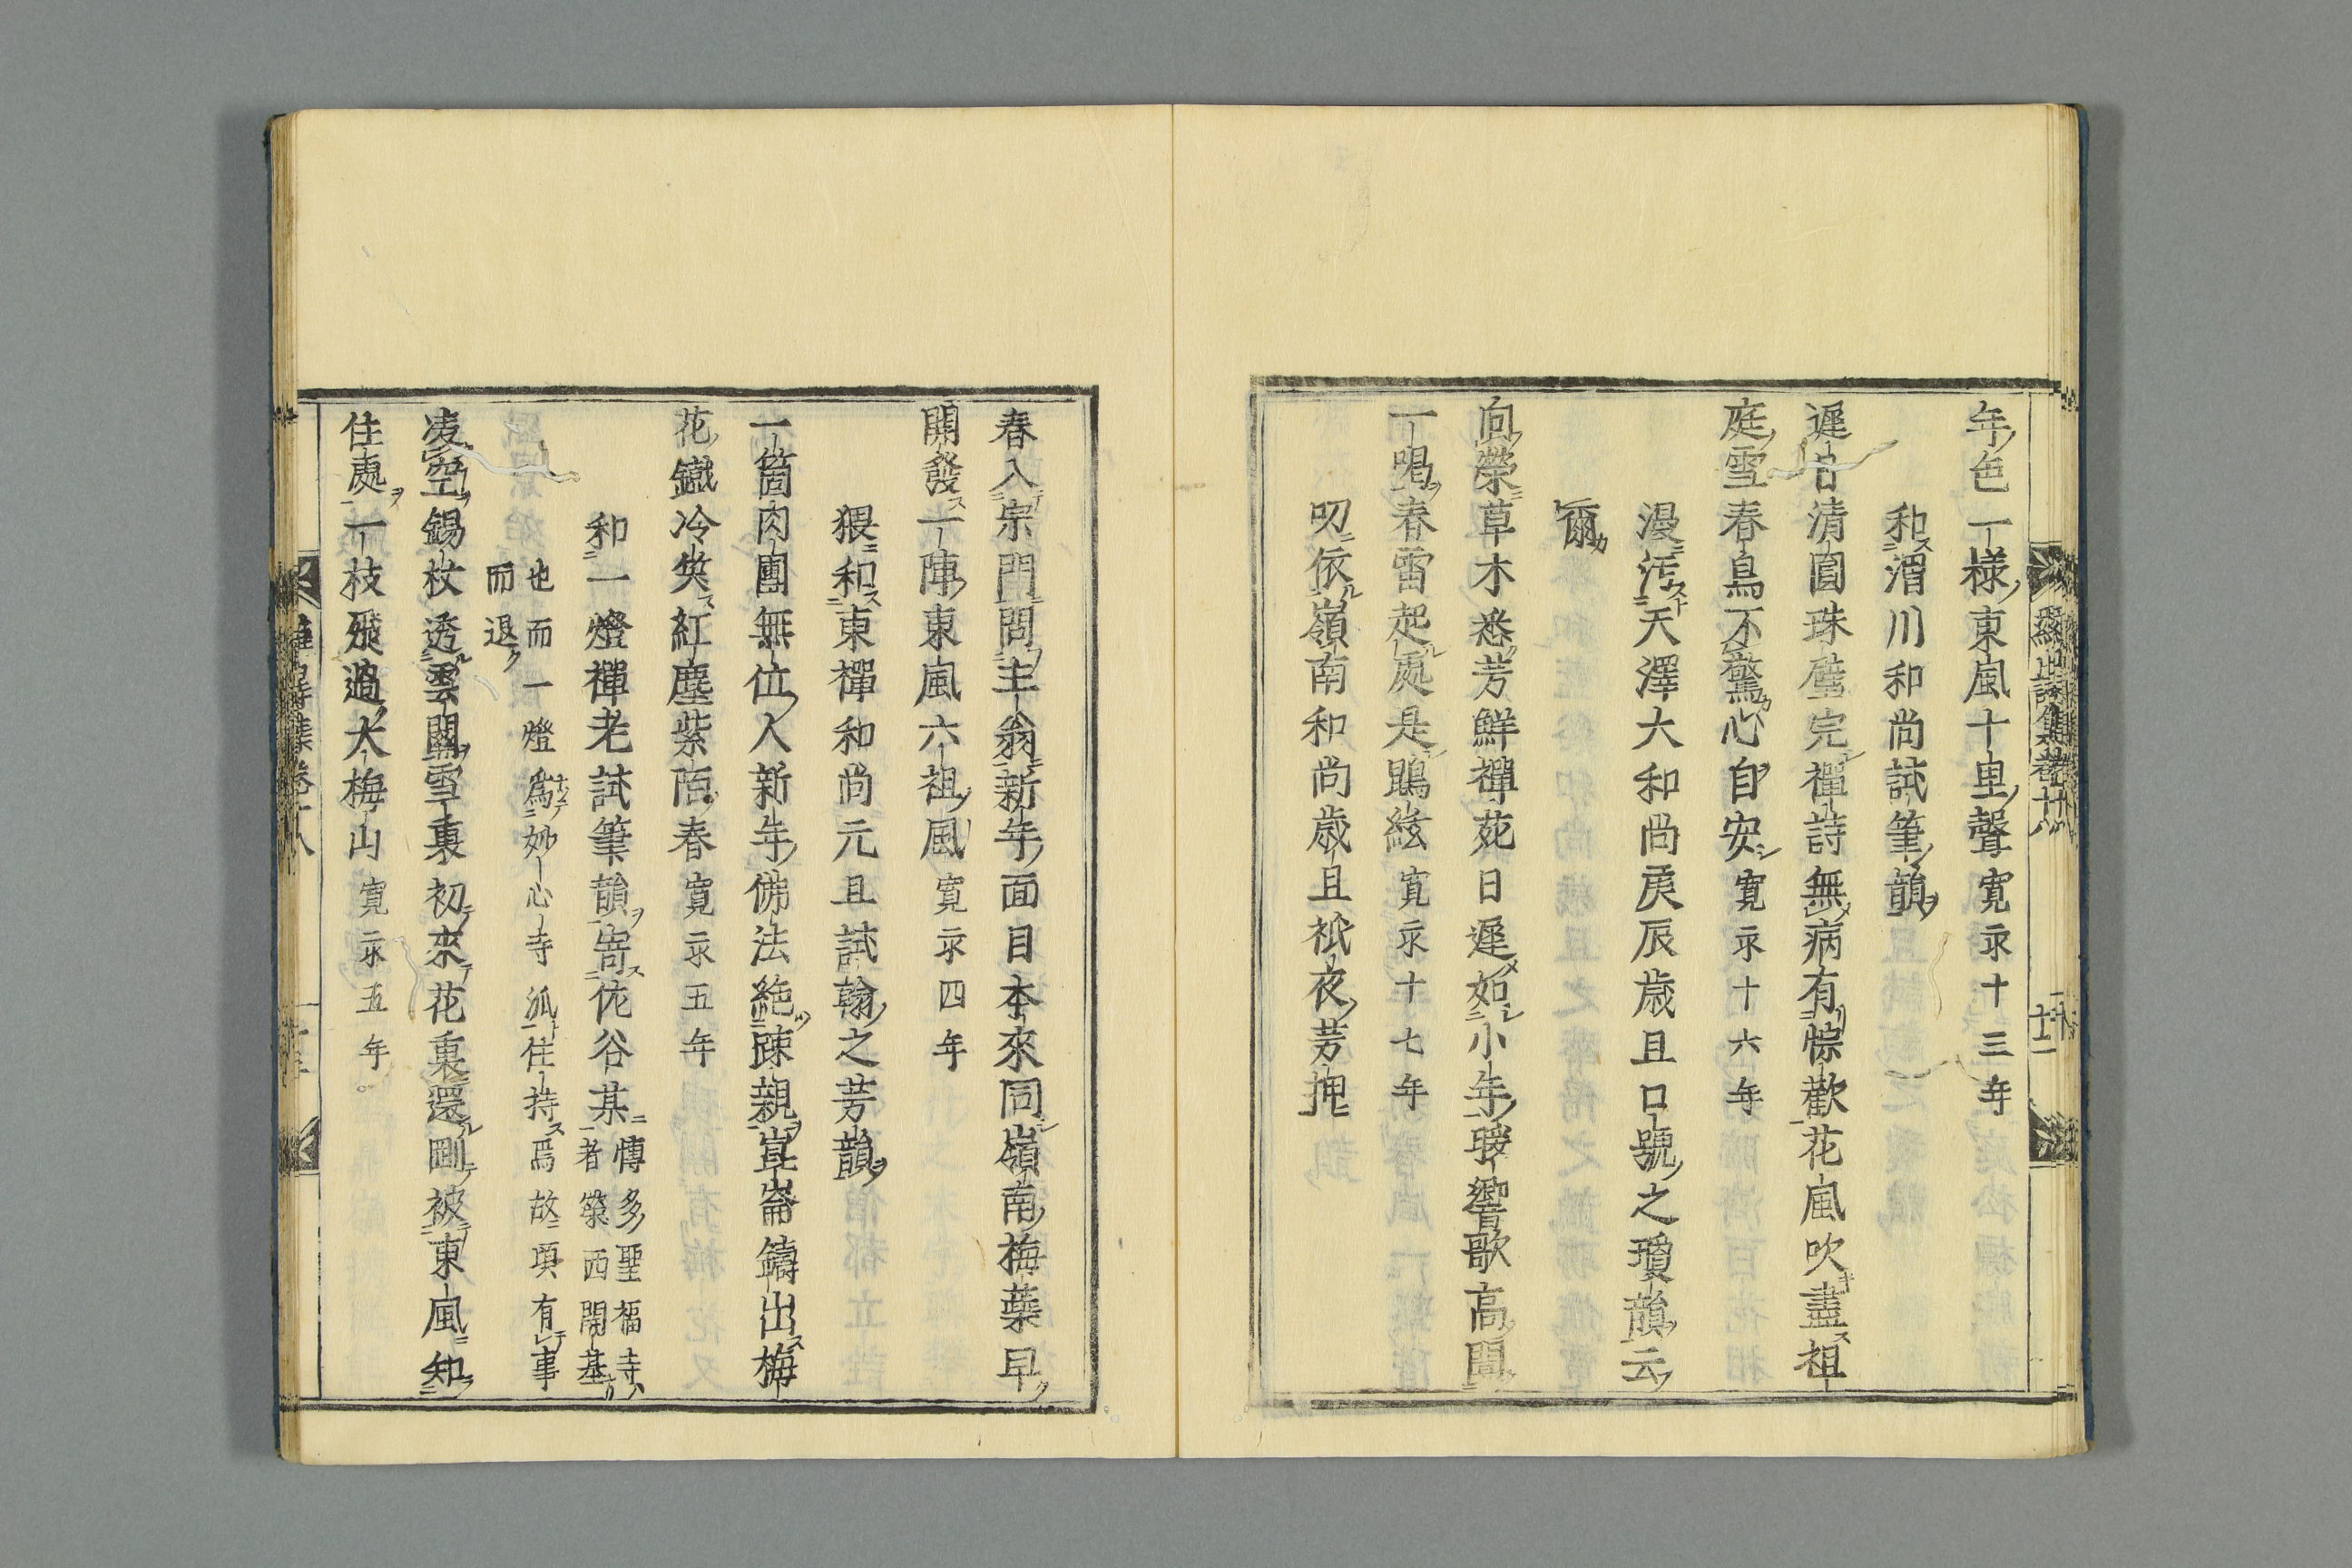 年色一様東風十里聲寛永十三年
和渭川和尚試筆韻
遲日清圓珠璧完禪詩無病有悰歡花風吹盡祖
庭雪春鳥不驚心自安寛永十六年
漫汚天澤大和尚庚辰歳旦口號之瓊韻云
爾
向榮草木悉芳鮮禪苑日遲如小年瑷響歌高聞
一喝春雷起處是鵾絃寛永十七年
叨依嶺南和尚歳旦祗夜芳押
春入宗門問主翁新年面目本來同嶺南梅蘂早
開發一陣東風六祖風寛永四年
猥和東禪和尚元旦試翰之芳韻
一箇肉團無位人新年佛法絶疎親崑崙鑄出梅
花鐵冷笑紅塵紫陌春寛永五年
和一燈禪老試筆韻寄佐谷某博多聖福寺
者築西開基
也而一燈爲妙心寺派住持爲故項有事
而退
凌空錫杖透雲關雪裏初來花裏還剛被東風知
住處一枝飛過大梅山寛永五年